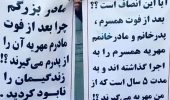 آیا این انصاف است؟؟
بعد از فوت همسرم ،
پدرخانم و مادرخانم
مهریه همسرم را به
اجرا گذاشته اند و به
مدت ۵ سال است که از
من مهریه می‌گیرند!!
مادر بزرگم
چرا بعد از فوت
مادرم مهریه آن را
از پدرم می‌گیرند؟!
زندگیمان را
نابود کردید .